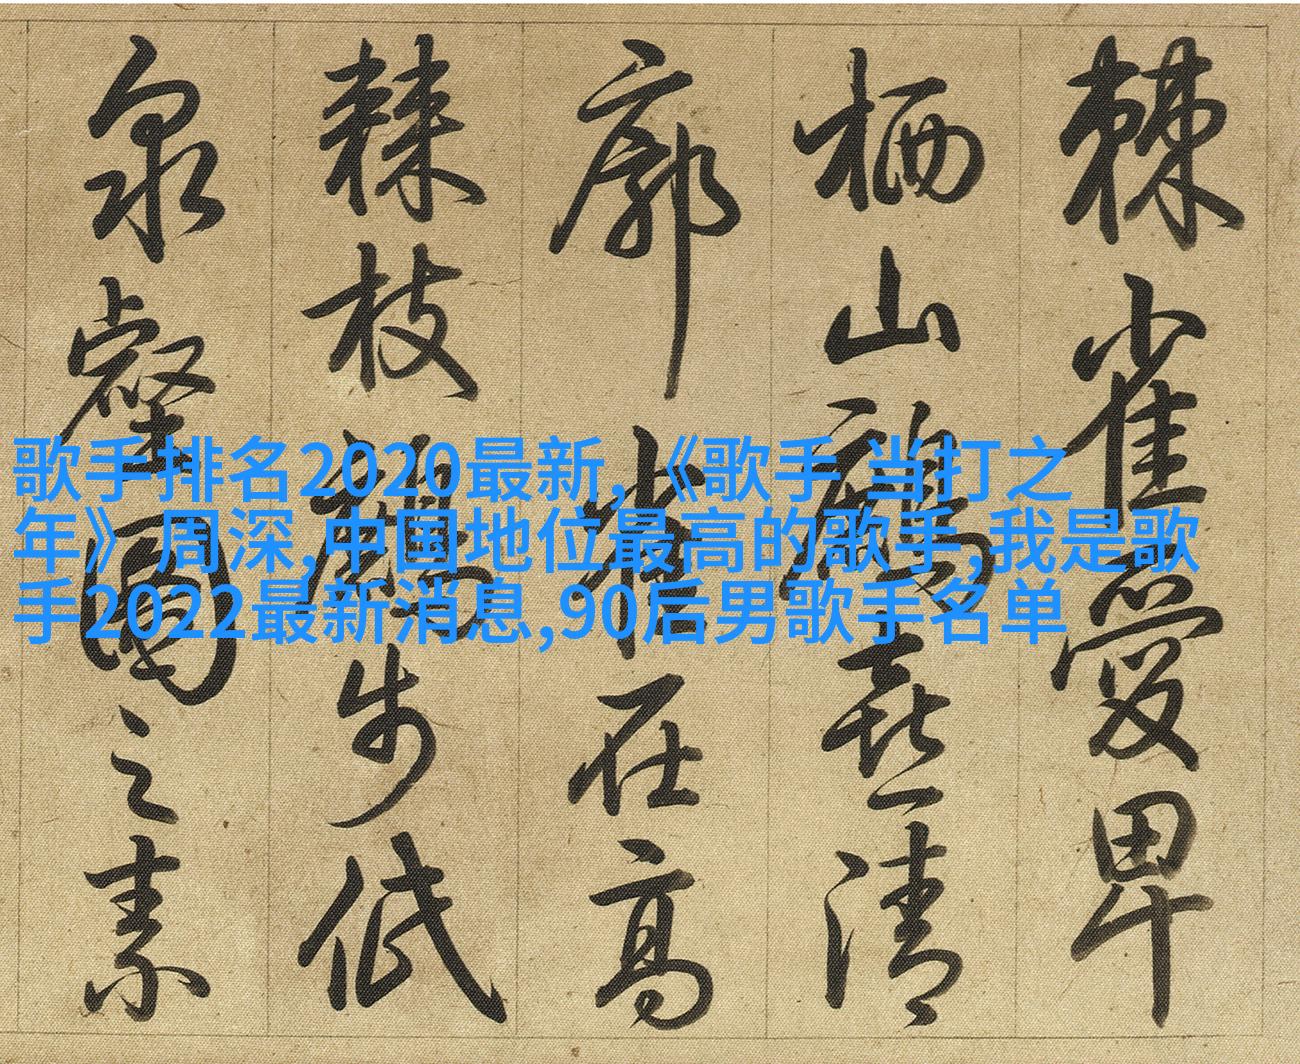 棘雀愛卑
栖山喜清
廓在高
棘枝步低
泉之素
歌手排名2020最新,《歌手 当打之
年》周深,中国地位最高的歌手,我是歌
手2022最新消息,90后男歌手名单